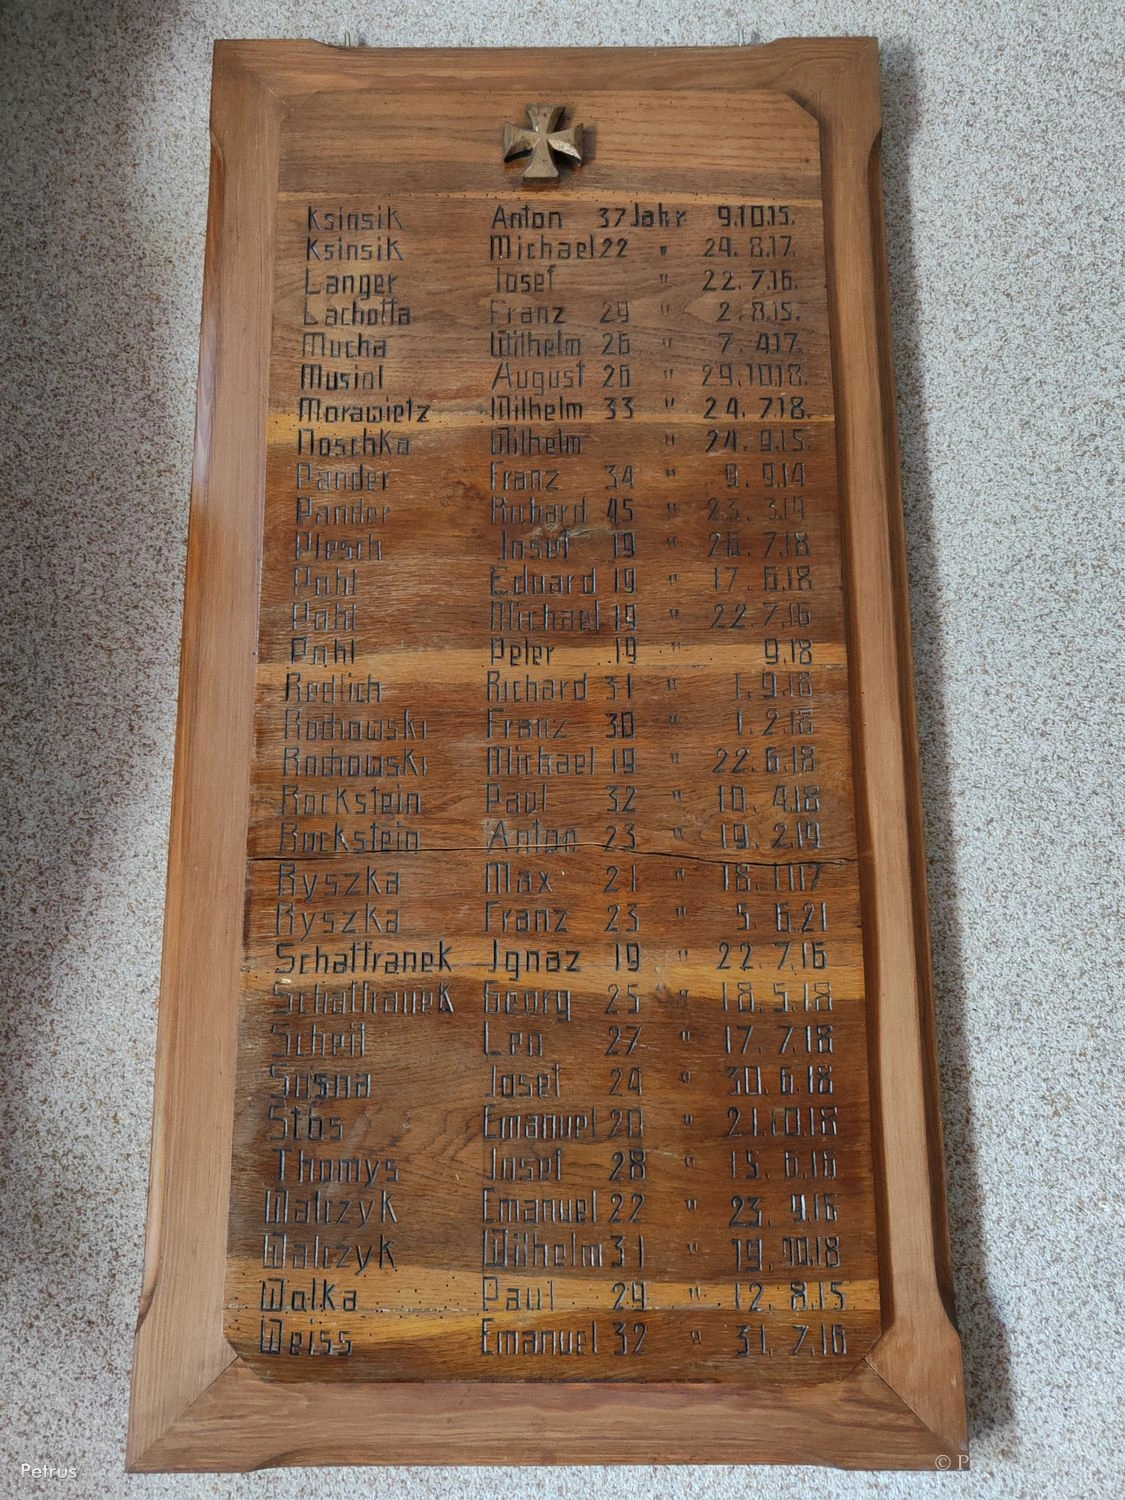 Ksinsik Anton 37 Jahr 9.10.15.
Ksinsik Michael 22 " 29. 8.17.
Langer Josef " 22. 7.16.
Lachotta Franz 29 " 2. 8.15.
Mucha Wilhelm 26 " 7. 417.
Musiol August 26 " 29.10.18.
Morawietz Wilhelm 33 " 24. 7.18.
Noschka Wilhelm " 24. 9.15.
Pander Franz 34 " 9. 9.14
Pander Richard 45 " 23. 3.19
Plesch Josef 19 " 26. 7.18
Pohl Eduard 19 " 17. 6.18
Pohl Michael 19 " 22 7.16
Pohl Peter 19 " 9.18
Redlich Richard 31 " 1. 9.18
Rochowski Franz 30 " 1. 2.18
Rochowski Michael 19 " 22. 6.18
Rockstein Paul 32 " 10. 4.18
Rockstein Anton 23 " 19. 2.19
Ryszka Max 21 " 18. 1117
Ryszka Franz 23 " 5. 6.21
Schaffranek Ignaz 19 " 22. 7.16
Schaffranek Georg 25 " 18. 5.18
Scheil Leo 27 " 17. 7.18
Sosna Josef 24 " 30. 6.18
Stös Emanuel 20 " 21.10.18
Thomys Josef 28 " 15. 6.16
Walczyk Emanuel 22 " 23. 9.16
Walczyk Wilhelm 31 " 19. 10.18
Wolka Paul 29 " 12. 8.15
Weiss Emanuel 32 " 31. 7.16
Petrus
© P